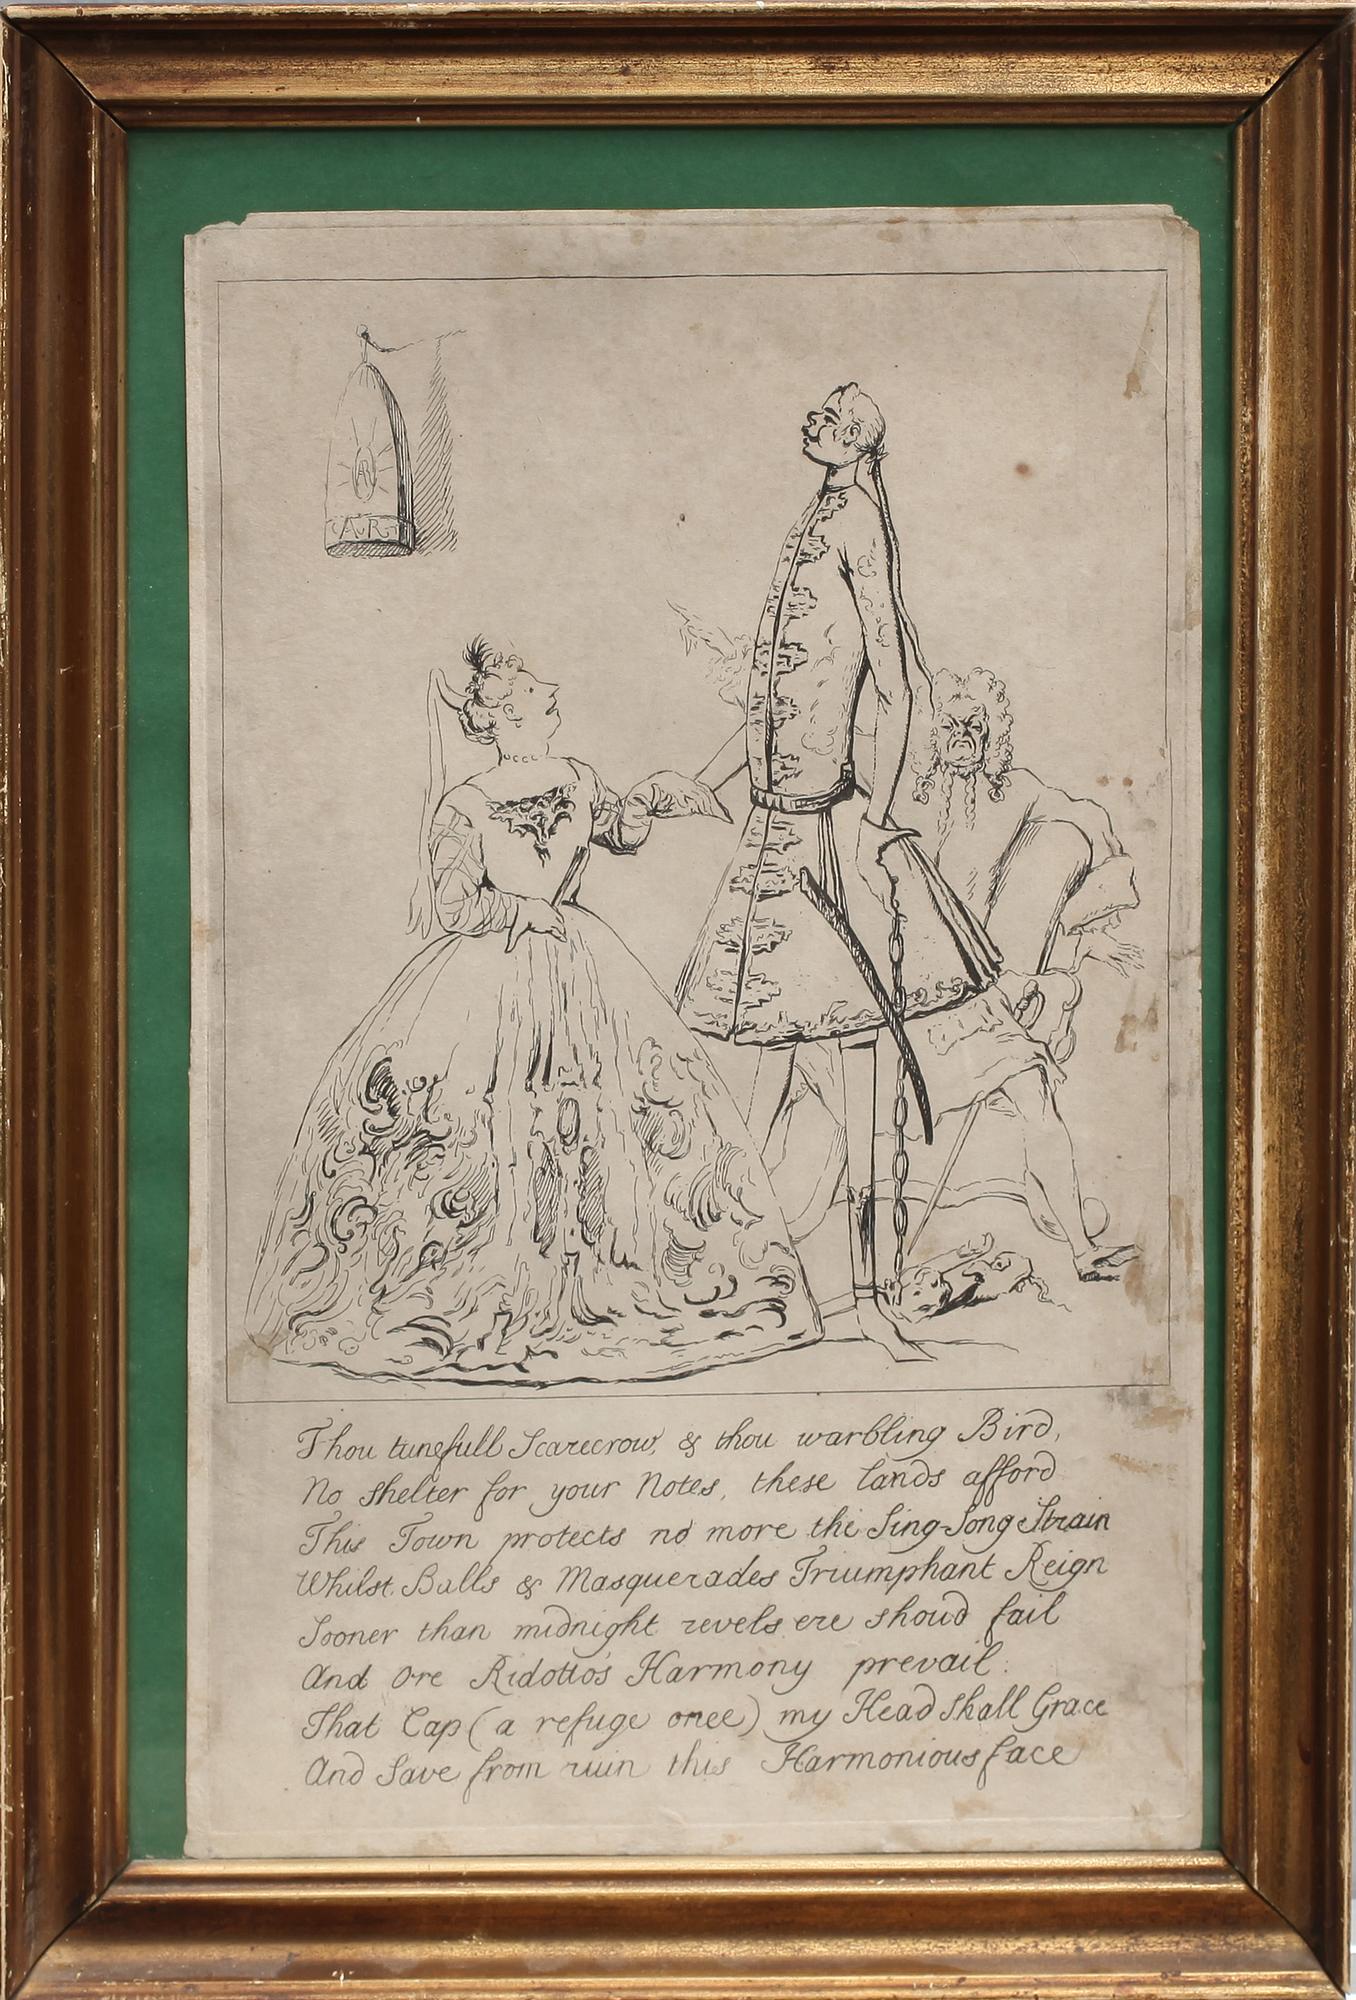 AR
A.R.
Thou tunefull Scarecrow, & thou warbling Bird,
No shelter for your Notes, these lands afford
This Town protects no more the Sing-Song Strain
Whilst Balls & Masquerades Triumphant Reign
Sooner than midnight revels ere shoud fail
And ore Ridotto's Harmony prevail:
That Cap (a refuge once) my Head shall Grace
And Save from ruin this Harmonious face